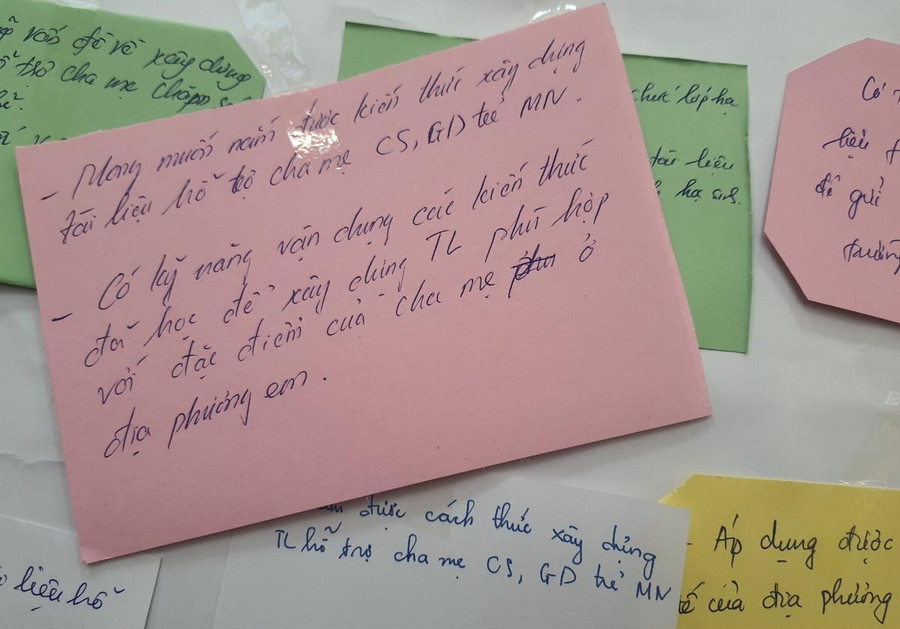 vấn đề về xây dựng
trợ cha mẹ chăm
- Mong muốn nắm được kiến thức xây dựng
tài liệu hỗ trợ cha mẹ CS, GD trẻ MN.
- Có kỹ năng vận dụng các kiến thức
đã học để xây dựng TL phù hợp
với đặc điểm của cha mẹ ở
địa phương em.
chức lớp học
tài liệu
học sinh.
Có
liệu
để gửi
trường
được cách thức xây dựng
TL hỗ trợ cha mẹ CS, GD trẻ MN
- Áp dụng được
tế của địa phương
liệu hỗ